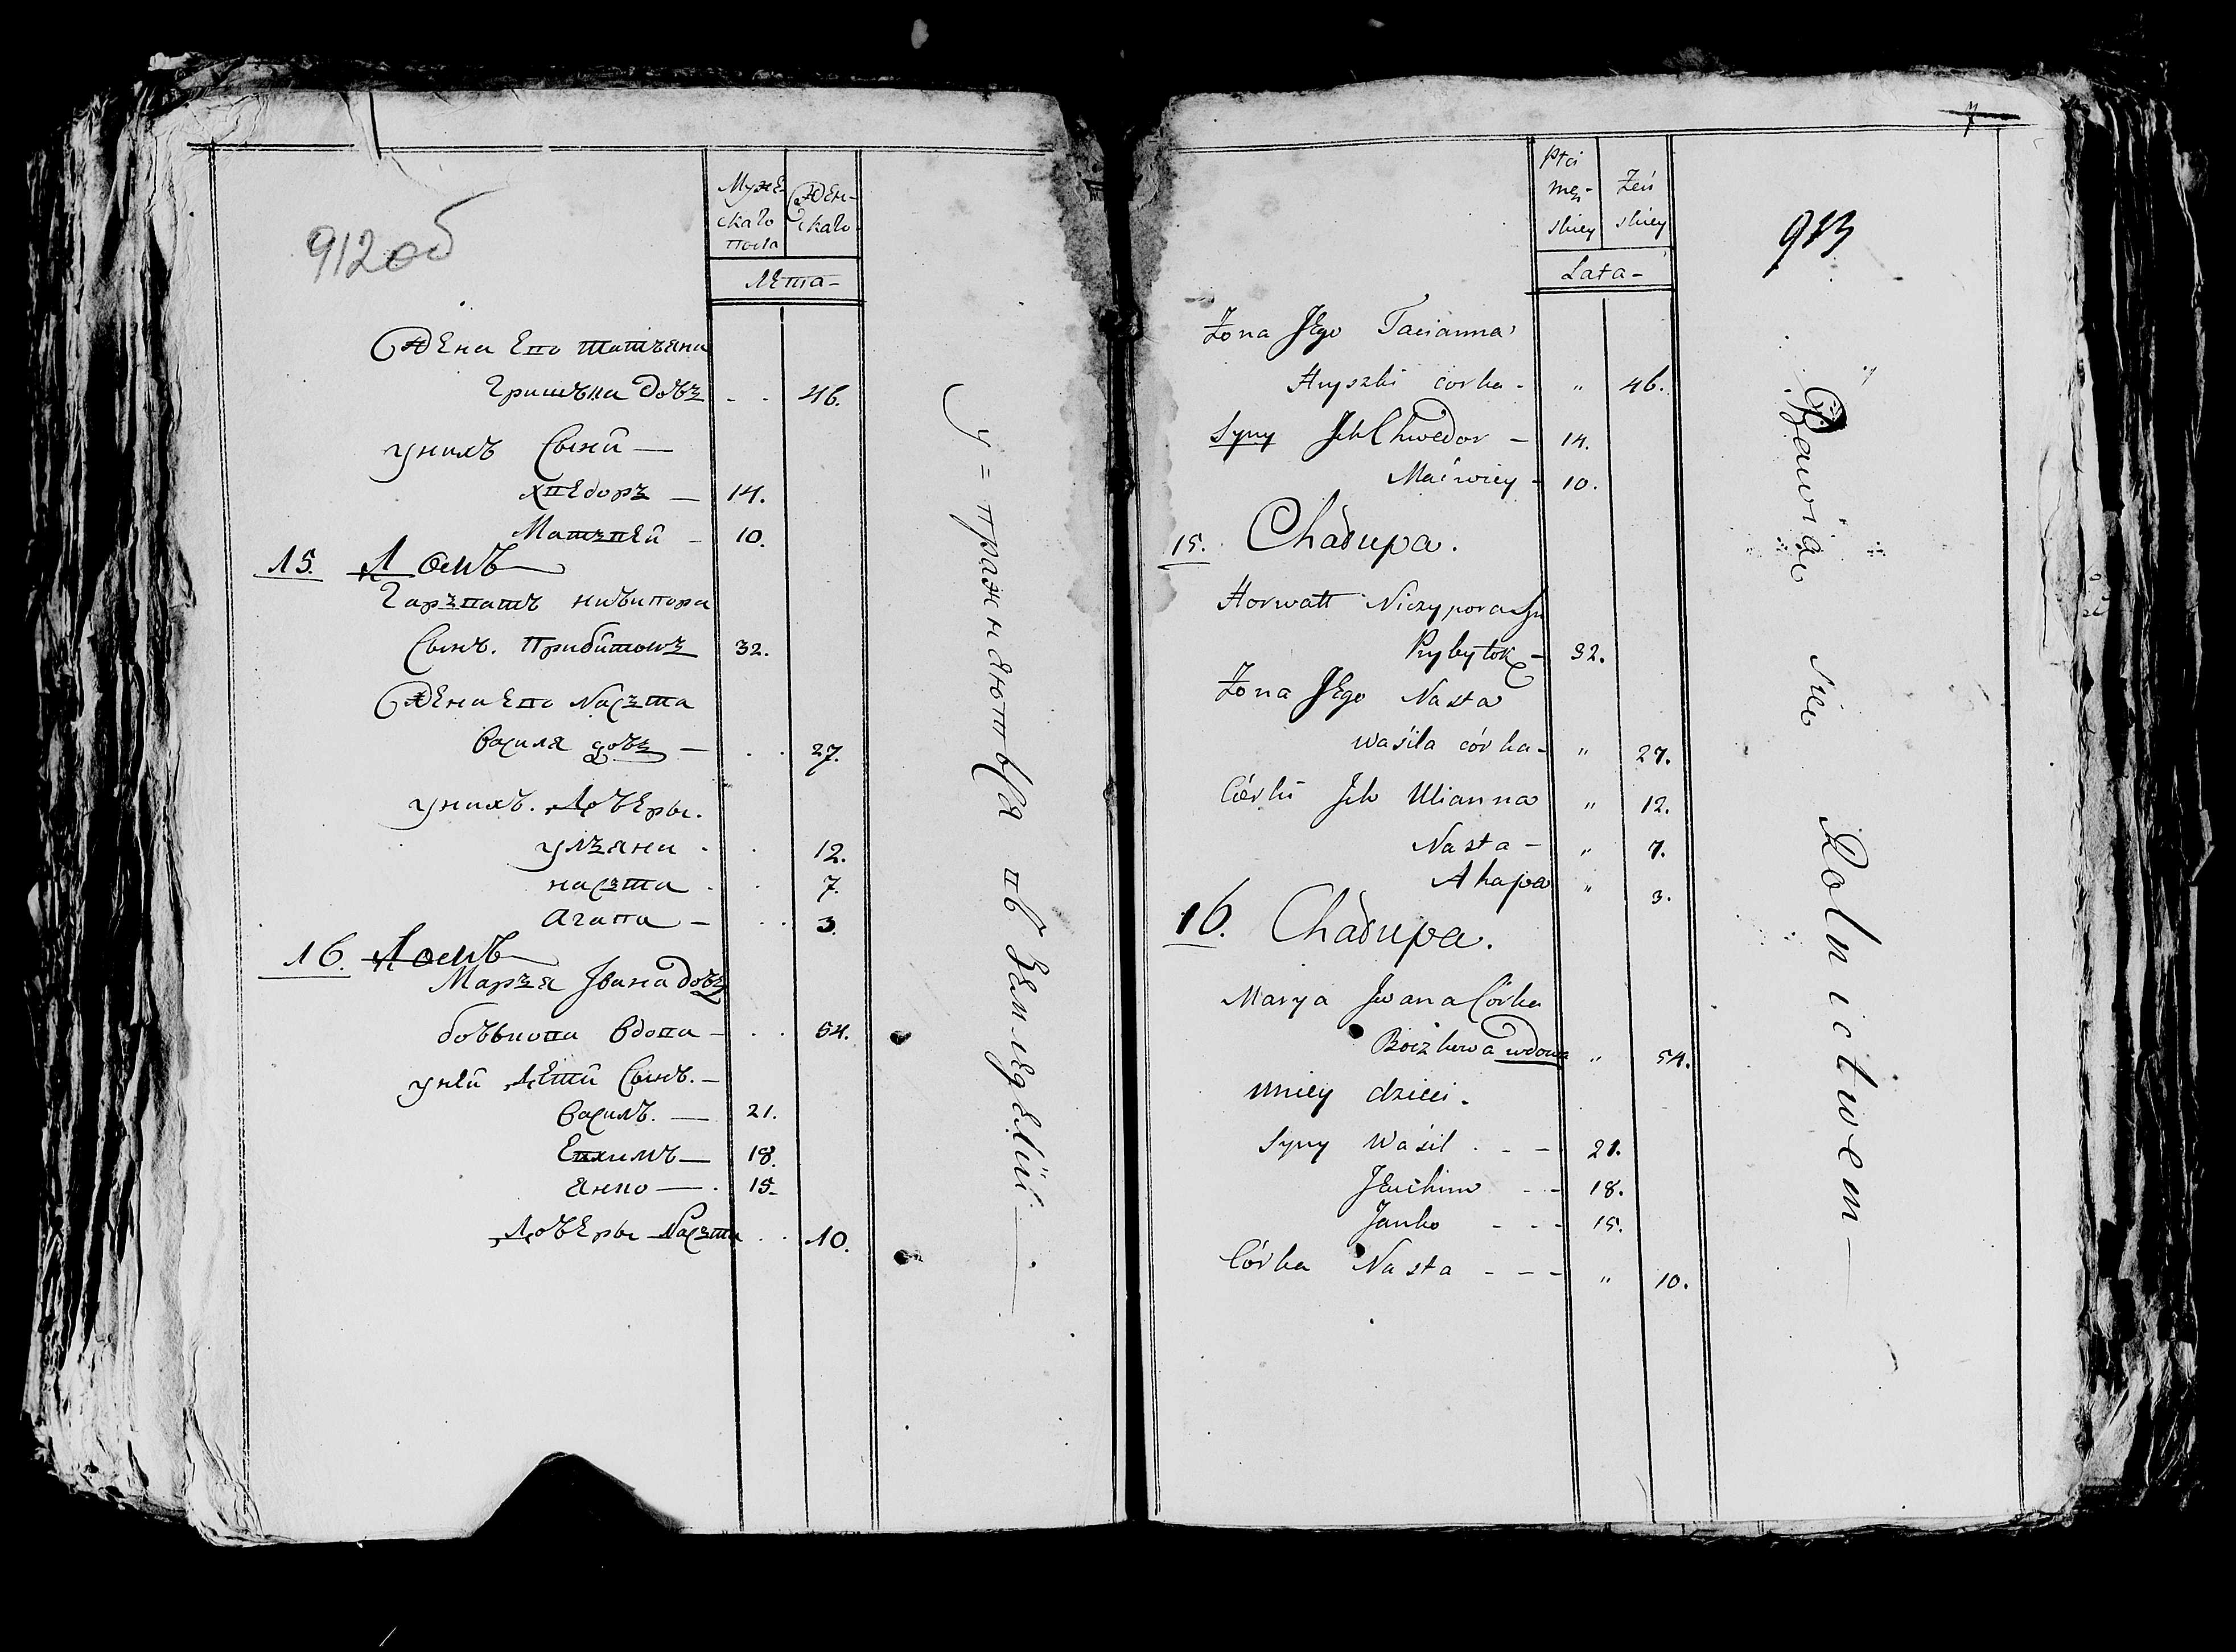 912 об
Муже
скаго
пола
Женскаго
Лета
Жена Его татъяна
Гришъка довъ 46.
у нихъ Сыни —
хведоръ — 14.
Матъвей — 10.
15. Домъ
Гаръватъ ничипора
Сынъ. Прибитокъ 32.
Жена Его Насъта
василя довъ — 27.
у нихъ. Дочеры.
улъяна 12.
насъта 7.
Агапа — 3.
16. Домъ
Маръя Ивана довъ
бочькова вдова — 54.
у ней Дети Сынъ. —
василъ. — 21.
Евхимъ — 18.
янко — 15.
Дочеры Насъта 10.
У=пражняются въ Земледелии —
7
913
Płci
męz-
skiey
Żeń
skiey
Lata -
Żona Jego Tacianna
Hryszki corka - " 46.
Syny Ich Chwedor - 14.
Maćwiey - 10.
15. Chałupa.
Horwatt Niczypora Syn
Prybytok - 32.
Żona Jego Nasta
Waśila córka - " 27.
Córki Ich Ulianna " 12.
Nasta - " 7.
Ahapa " 3.
16. Chałupa.
Marya Jwana Córka
Boczkowa wdowa " 54.
Uniey dzieci.
Syny Waśil - - 21.
Jeuchim - - 18.
Janko - - - 15.
Córka Nasta - - - " 10.
Bawią się Rolnictwem —